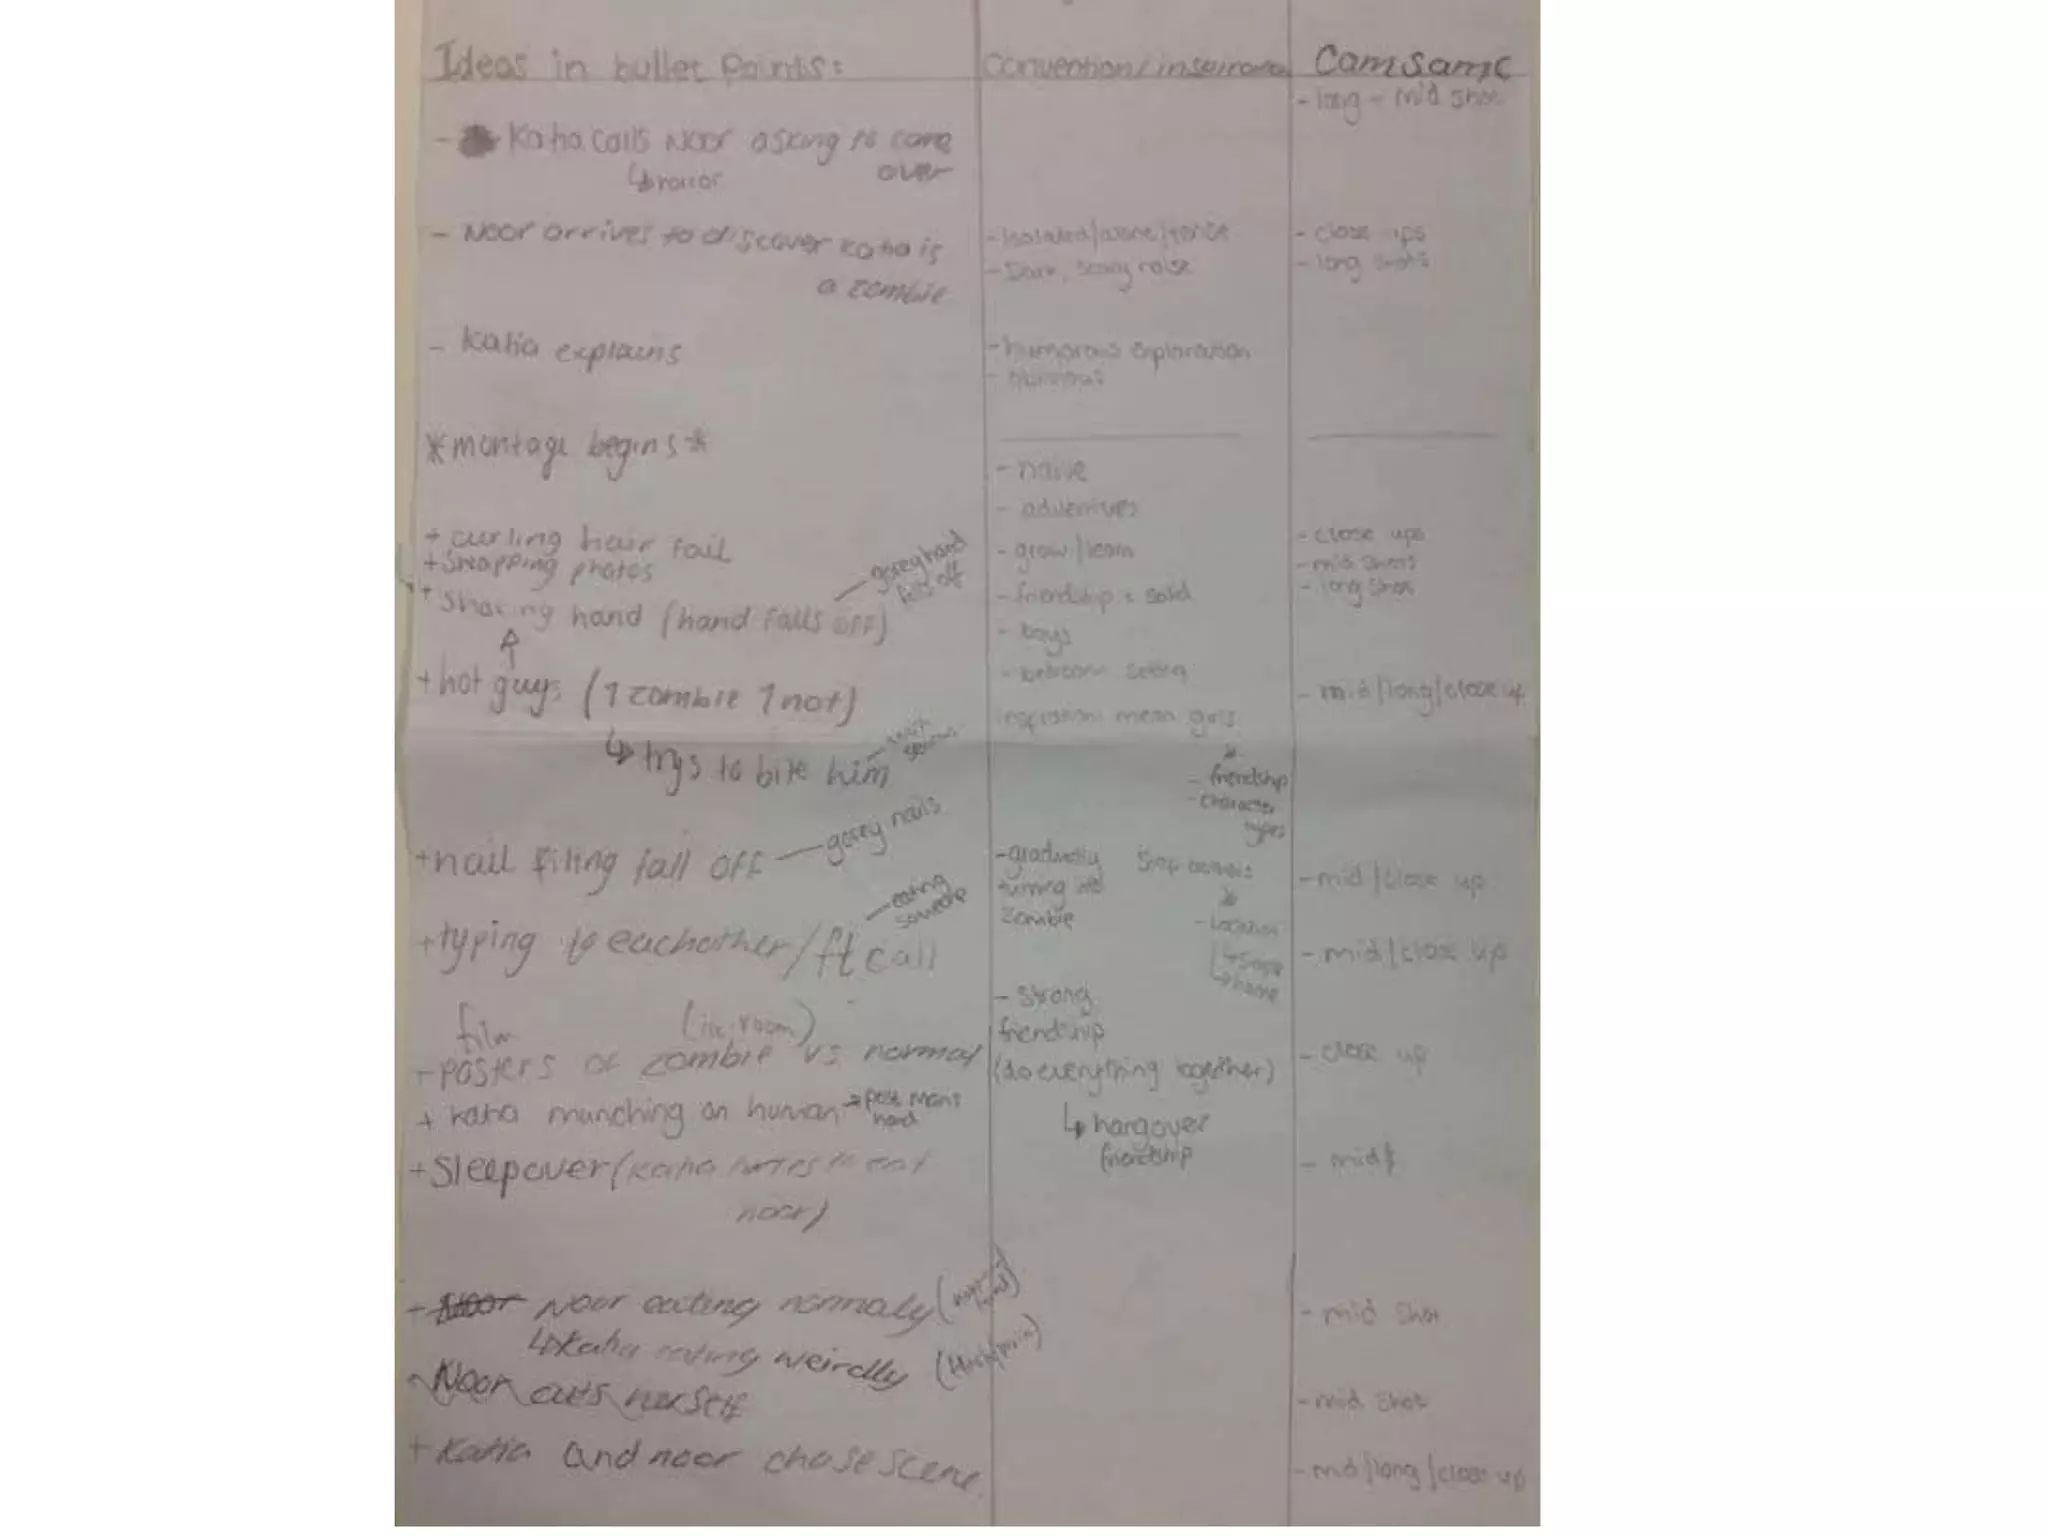 Ideas in bullet points:
- Katia calls Noor asking to come
over
↳ horror
- Noor arrives to discover Katia is
a zombie
- Katia explains
*montage begins*
+ curling hair fail
+ snapping photos
+ sharing hand (hand falls off) — gorey hand
falls off
+ hot guys (1 zombie 1 not)
↳ trys to bite him
+ nail filing fall off — gorey nails
+ typing to eachother / ft call — eating
someone
film
+ posters of zombie vs normal
+ Katia munching on human → post mans
hand
+ Sleepover (Katia tries to eat
noor)
- Noor eating normaly
↳ Katia eating weirdly
- Noor cuts herself
+ Katia and noor chase scene
Convention/inspiration
- Isolated/alone/tense
- Dark, scary noise
- humorous explanation
- humorous
- naive
- adventures
- grow/learn
- friendship = solid
- boys
- bedroom setting
inspiration: mean girls
- friendship
- character
types
- gradually
turning into
zombie
- Location
- strong
friendship
(do everything together)
↳ hangover
friendship
Camsamc
- long - mid shot
- close ups
- long shots
- close ups
- mid shots
- long shot
- mid/long/close up
- mid/close up
- mid/close up
- close up
- mid
- mid shot
- mid shot
- mid/long/close up